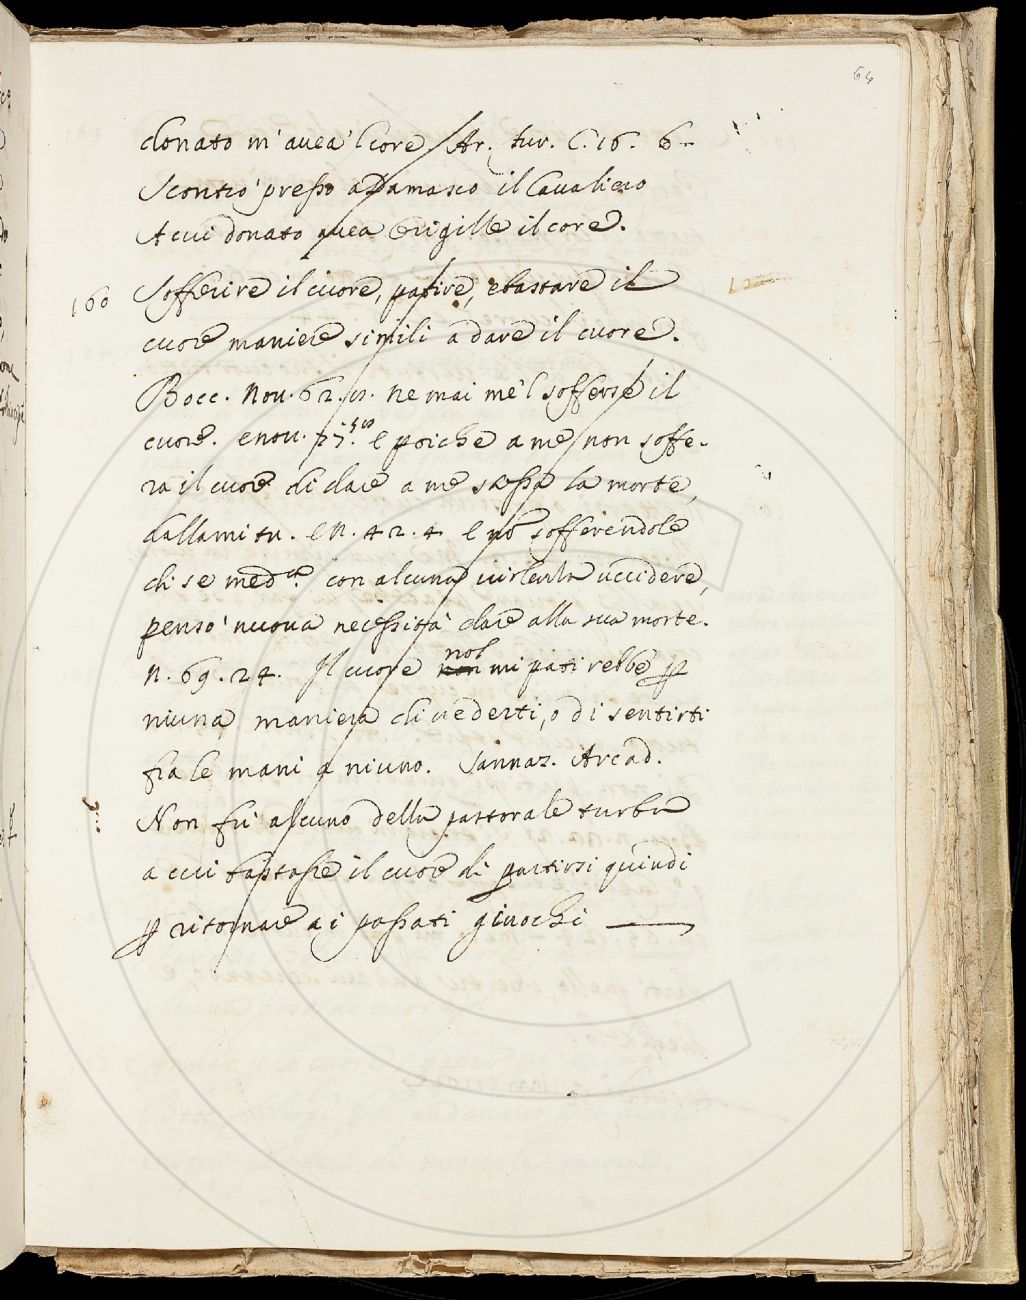 64
donato m' avea 'l core Ar. fur. C. 16. 6
Scontrò presso a Damasco il Cavaliero
A cui donato avea Origille il core.
160 Sofferire il cuore, patire, e bastare il
cuore maniere simili a dare il cuore.
Bocc. Nov. 62. ne mai me 'l sofferse il
cuore. e nov. 27. E poiche a me non soffe-
ra il cuore di dare a me stessa la morte,
dallami tu. e N. 42. 4 E nō sofferendole
di se med.ma con alcuna uccidere,
pensò nuova necessità dare alla sua morte.
N. 69. 24. Il cuore nol mi patirebbe p
niuna maniera di vederti, o di sentirti
fra le mani a niuno. Sannaz. Arcad.
Non fù alcuno della pastorale turba
a cui bastasse il cuore di partirsi quindi
p ritornare a i passati giuochi